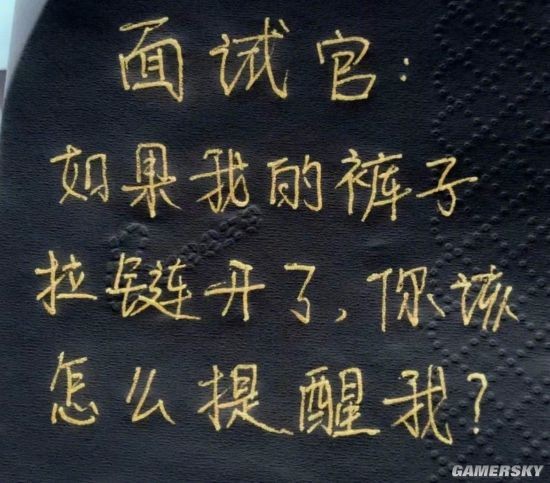 面试官:
如果我的裤子
拉链开了,你该
怎么提醒我?
GAMERSKY